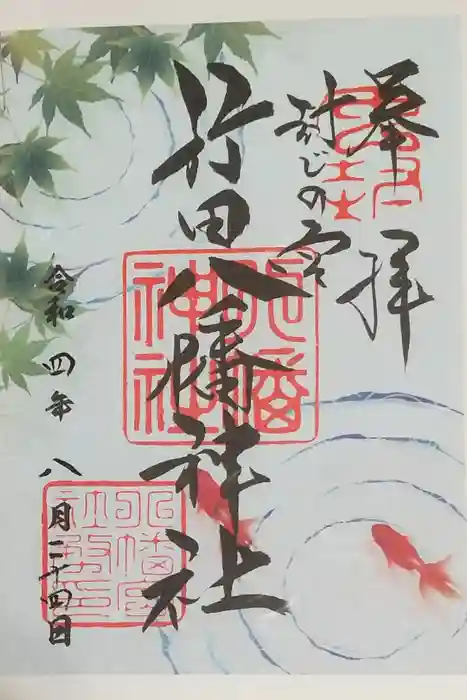 奉拝
封じの宮
行田八幡神社
八幡神社
令和四年八月二十四日